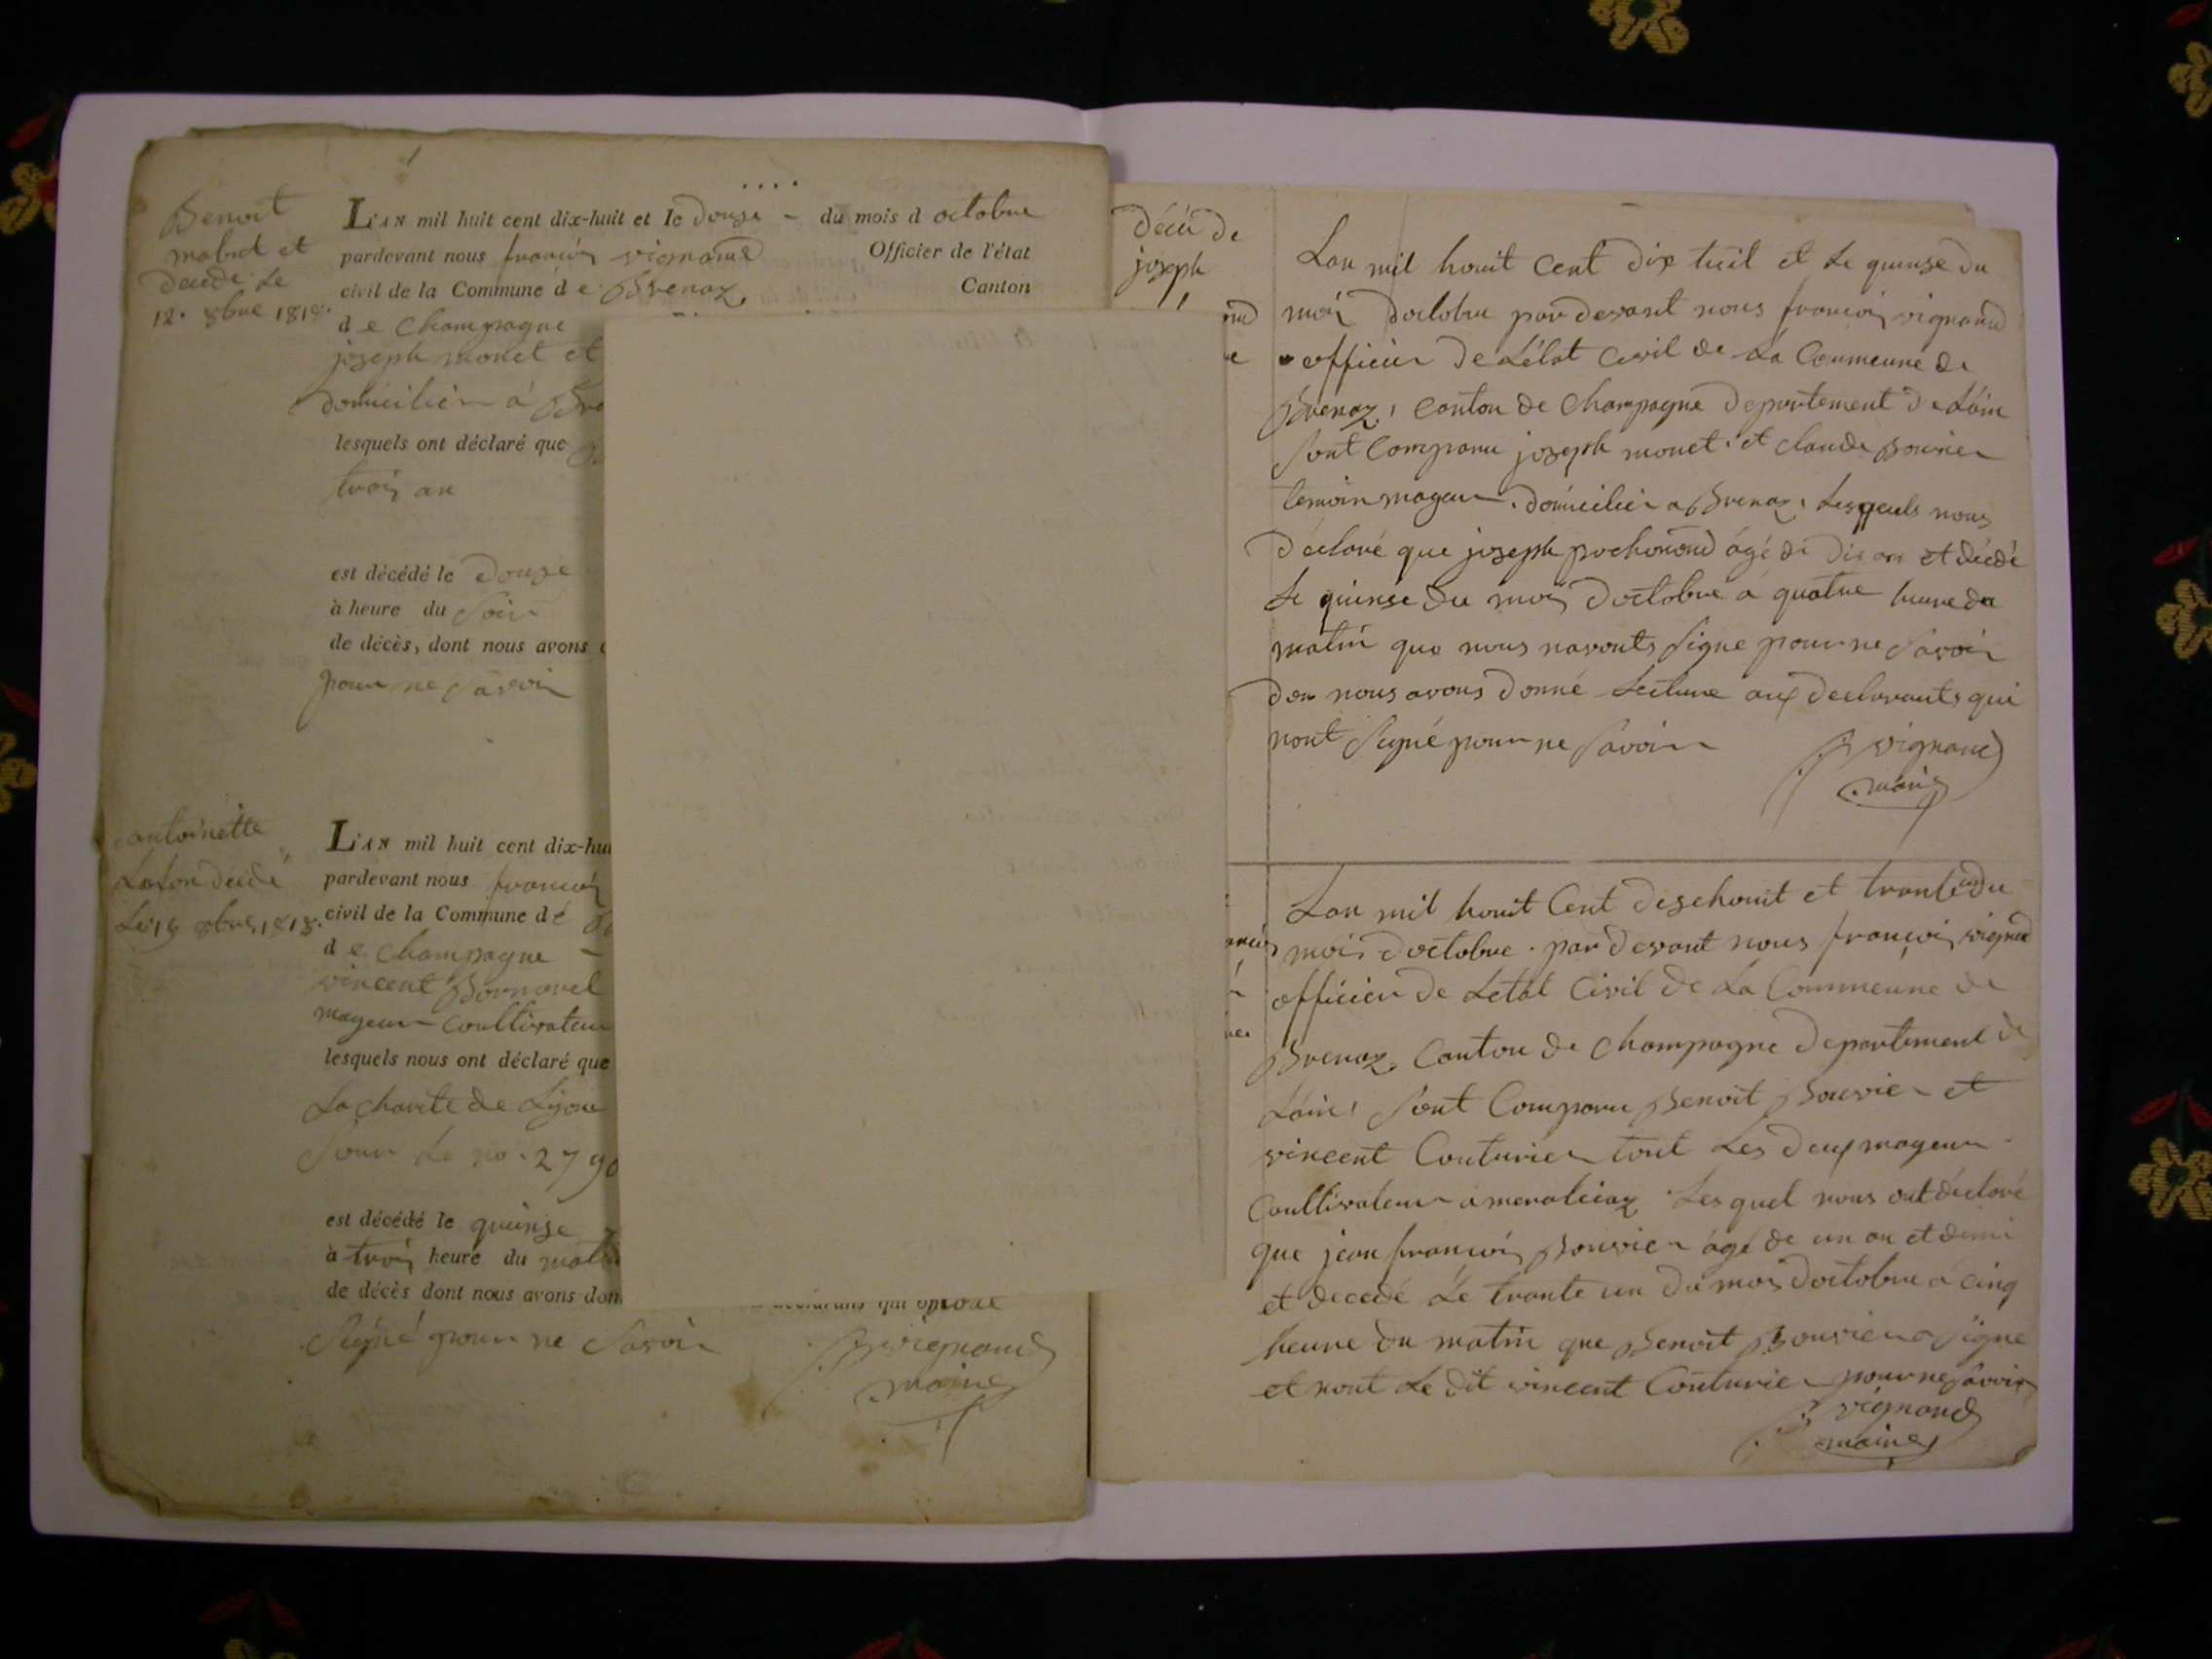 Benoit
et
décédé Le
12. 8bre 1818.
L'AN mil huit cent dix-huit et le douze - du mois d octobre
pardevant nous françois vignand Officier de l'état
civil de la Commune d e Brenaz, Canton
d e Champagne
joseph monet et
domicilier à Bre
lesquels ont déclaré que
trois an
est décédé le douze
à heure du soir
de décès, dont nous avons
pour ne savoir
antoinette
décédé
Le 15 8bre 1818.
L'AN mil huit cent dix-hui
pardevant nous françois
civil de la Commune d e
d e Champagne -
vincent
mageur Coultivateur
lesquels nous ont déclaré que
La charite de Lijon
Sous Le no. 2790
est décédé le quinse
à trois heure du mati
de décès dont nous avons don
Signé pour ne Savoir
vignand
maire
décè de
joseph
Lan mil houit Cent dix huit et Le quinse du
mois doctobre par devant nous françois vignand
officier de Létat Civil de La Coumeune de
Brenaz, Canton de Champagne departement de Lain
Sont Comparu joseph monet et claude Bouvier
temoin mageur domicilier a Brenaz, Lesqeuls nous
déclaré que joseph pochonond âgé de dis an et décédé
Le quinse du mois doctobre a quatre heure du
matin que nous navonts Signe pour ne Savoir
don nous avons donné Lecture aux declarants qui
nont Signé pour ne Savoir
vignand
maire
Lan mil houit Cent deschouit et trante un du
mois doctobre. par devant nous françois vignand
officier de Letat Civil de La Commeune de
Brenaz, Canton de Champagne departement de
Lain, Sont Comparu Benoit Bouvier et
vincent Couturier tout Les deux mageur
Coultivateur a meraleiaz Lesquel nous ont déclaré
que jean françois Bouvier âgé de un an et demi
et decedé Le trante un du mois doctobre a cinq
heure du matin que Benoit Bouvier a Signe
et nont Le dit vincent Couturier pour ne Savoir
vignand
maire